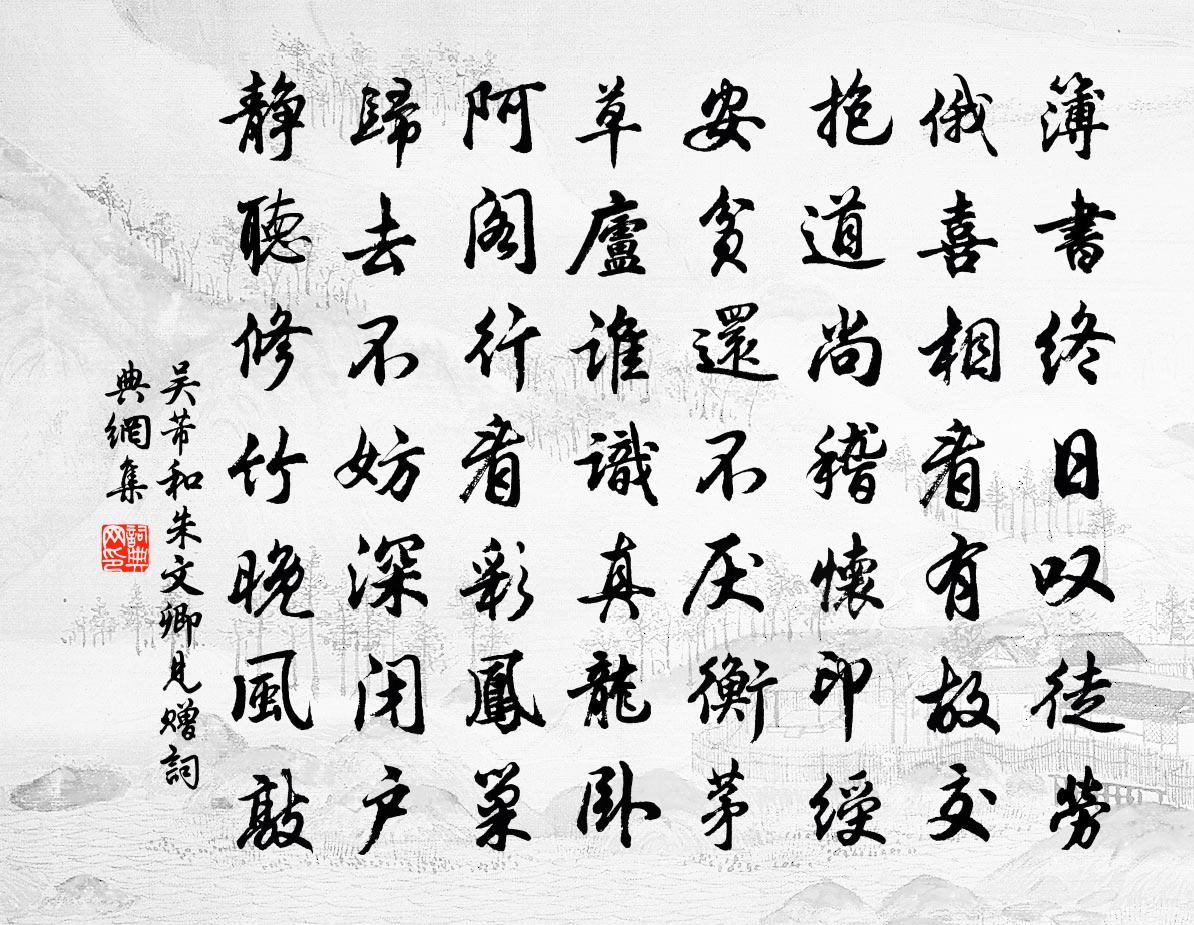 簿書終日叹徒勞
俄喜相看有故交
抱道尚稽懷印綬
安貧還不厌衡茅
草廬誰識真龍卧
阿阁行看彩鳳巢
歸去不妨深闭户
静聽修竹晚風敲
吴芾和朱文卿見赠詞
典網集
詞典
网印